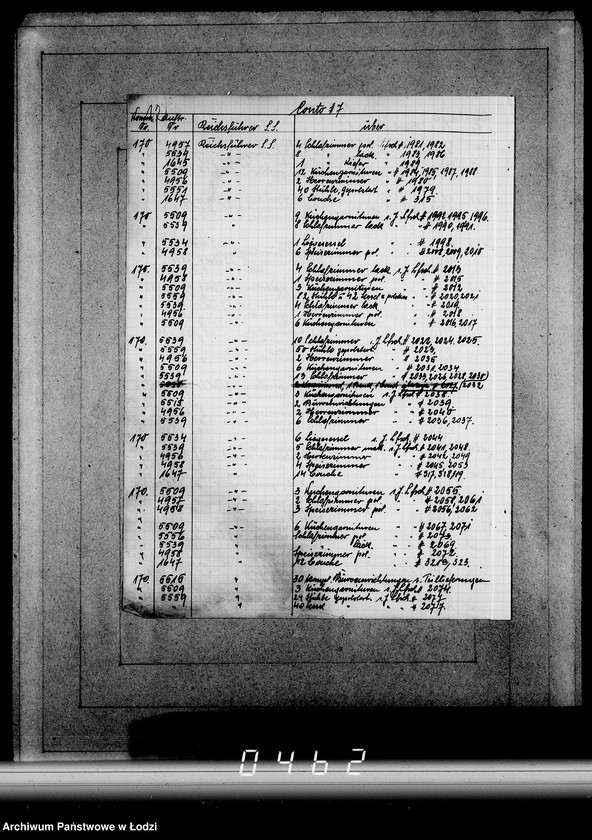 Conto 17
Kontra Auftr.
Nr. Nr Reichsführer S.S. über
170 4957 Reichsführer S.S. 4 Schlafzimmer pol. # 1981, 1982
" 5539 " 8 " lack. " 1983, 1986
" 1645 " 1 " Kiefer " 1989
" 5509 " 12 Küchengarnituren " # 1984, 1985, 1987, 1988
" 4956 " 2 Herrenzimmer " # 1980
" 5551 " 40 Stühle, gepolstert " # 1979
" 1647 " 6 Couche " # 315
170 5509 " 9 Küchengarnituren s. J. Lfsch # 1992, 1995, 1996.
" 5539 " 8 Schlafzimmer lack " # 1990, 1991.
" 5534 " 1 " # 1998.
" 4958 " 6 Speisezimmer pol. " # 2008, 2009, 2010
170. 5539 " 4 Schlafzimmer lack s. J. Lfsch # 2013
" 4958 " 1 Speisezimmer pol. " # 2015
" 5509 " 3 Küchengarnituren " # 2012
" 5559 " 82 Stühle u 42 " # 2020, 2021
" 5539 " 4 Schlafzimmer lack " # 2019
" 4956 " 1 Herrenzimmer pol " # 2018
" 5509 " 6 Küchengarnituren " # 2016, 2017
170. 5539 " 10 Schlafzimmer s. J. Lfsch # 2022, 2024, 2025.
" 5559 " 50 Stühle gepolstert " # 2023
" 4956 " 2 Herrenzimmer " # 2035
" 5509 " 6 Küchengarnituren " # 2031, 2034
" 5539 " 13 Schlafzimmer " # 2033, 2026, 2028, 2030
" 5509 " 3 Küchengarnituren s. J. Lfsch # 2038
" 5515 " 2 Büroeinrichtungen " # 2039
" 4956 " 2 Herrenzimmer " # 2040
" 5539 " 6 Schlafzimmer " # 2036, 2037.
170 5534 " 6 s. J. Lfsch # 2044
" 5539 " 5 Schlafzimmer " # 2041, 2048.
" 4956 " 2 Herrenzimmer " # 2042, 2049
" 4958 " 4 Speisezimmer " # 2045, 2053
" 1647 " 14 Couche " # 317, 318, 319.
170. 5509 " 3 Küchengarnituren s. J. Lfsch # 2055.
" 4957 " 2 Schlafzimmer pol. " # 2058, 2061
" 4958 " 3 Speisezimmer pol " # 2056, 2062
" 5509 " 6 Küchengarnituren " # 2067, 2071
" 5556 " Schlafzimmer pol. " # 2073
" 5539 " " lack. " # 2069
" 4958 " Speisezimmer pol " # 2072.
" 1647 " 12 Couche " # 321, 323.
170. 5515 " 30 kompl. Büroeinrichtungen s. Teillieferungen
" 5509 " 3 Küchengarnituren s. J. Lfsch # 2074.
" 5559 " 24 Stühle gepolstert s. J. Lfsch # 2077
" " " 40 " " # 2077.
0462
Archiwum Państwowe w Łodzi